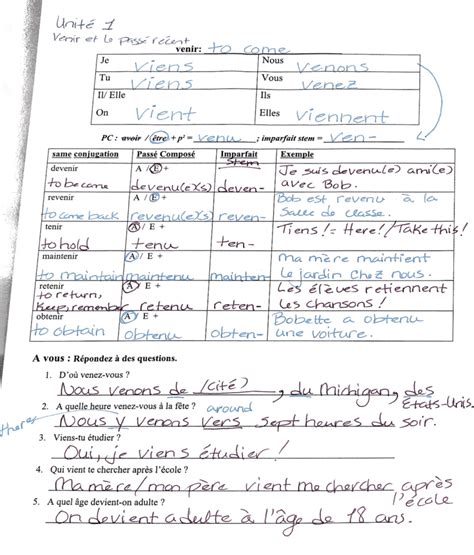 Unité 1
Venir et le passé récent
venir: to come
Je viens Nous venons
Tu viens Vous venez
Il/ Elle Ils
On vient Elles viennent
PC : avoir / être + p² = venu ; imparfait stem = ven-
same conjugation Passé Composé Imparfait Exemple
stem
devenir A / E + Je suis devenu(e) ami(e)
to become devenu(e)(s) deven- avec Bob.
revenir A / E + Bob est revenu à la
to come back revenu(e)(s) reven- salle de classe.
tenir A / E + Tiens! = Here! / Take this!
to hold tenu ten-
maintenir A / E + Ma mère maintient
to maintain maintenu mainten- le jardin chez nous.
retenir A / E + Les élèves retiennent
to return,
keep, remember retenu reten- les chansons!
obtenir A / E + Bobette a obtenu
to obtain obtenu obten- une voiture.
A vous : Répondez à des questions.
1. D'où venez-vous ?
Nous venons de (cité), du Michigan, des
États-Unis.
2. A quelle heure venez-vous à la fête ? around
there Nous y venons vers sept heures du soir.
3. Viens-tu étudier ?
Oui, je viens étudier!
4. Qui vient te chercher après l'école ?
Ma mère/mon père vient me chercher après
l'école
5. A quel âge devient-on adulte ?
On devient adulte à l'âge de 18 ans.